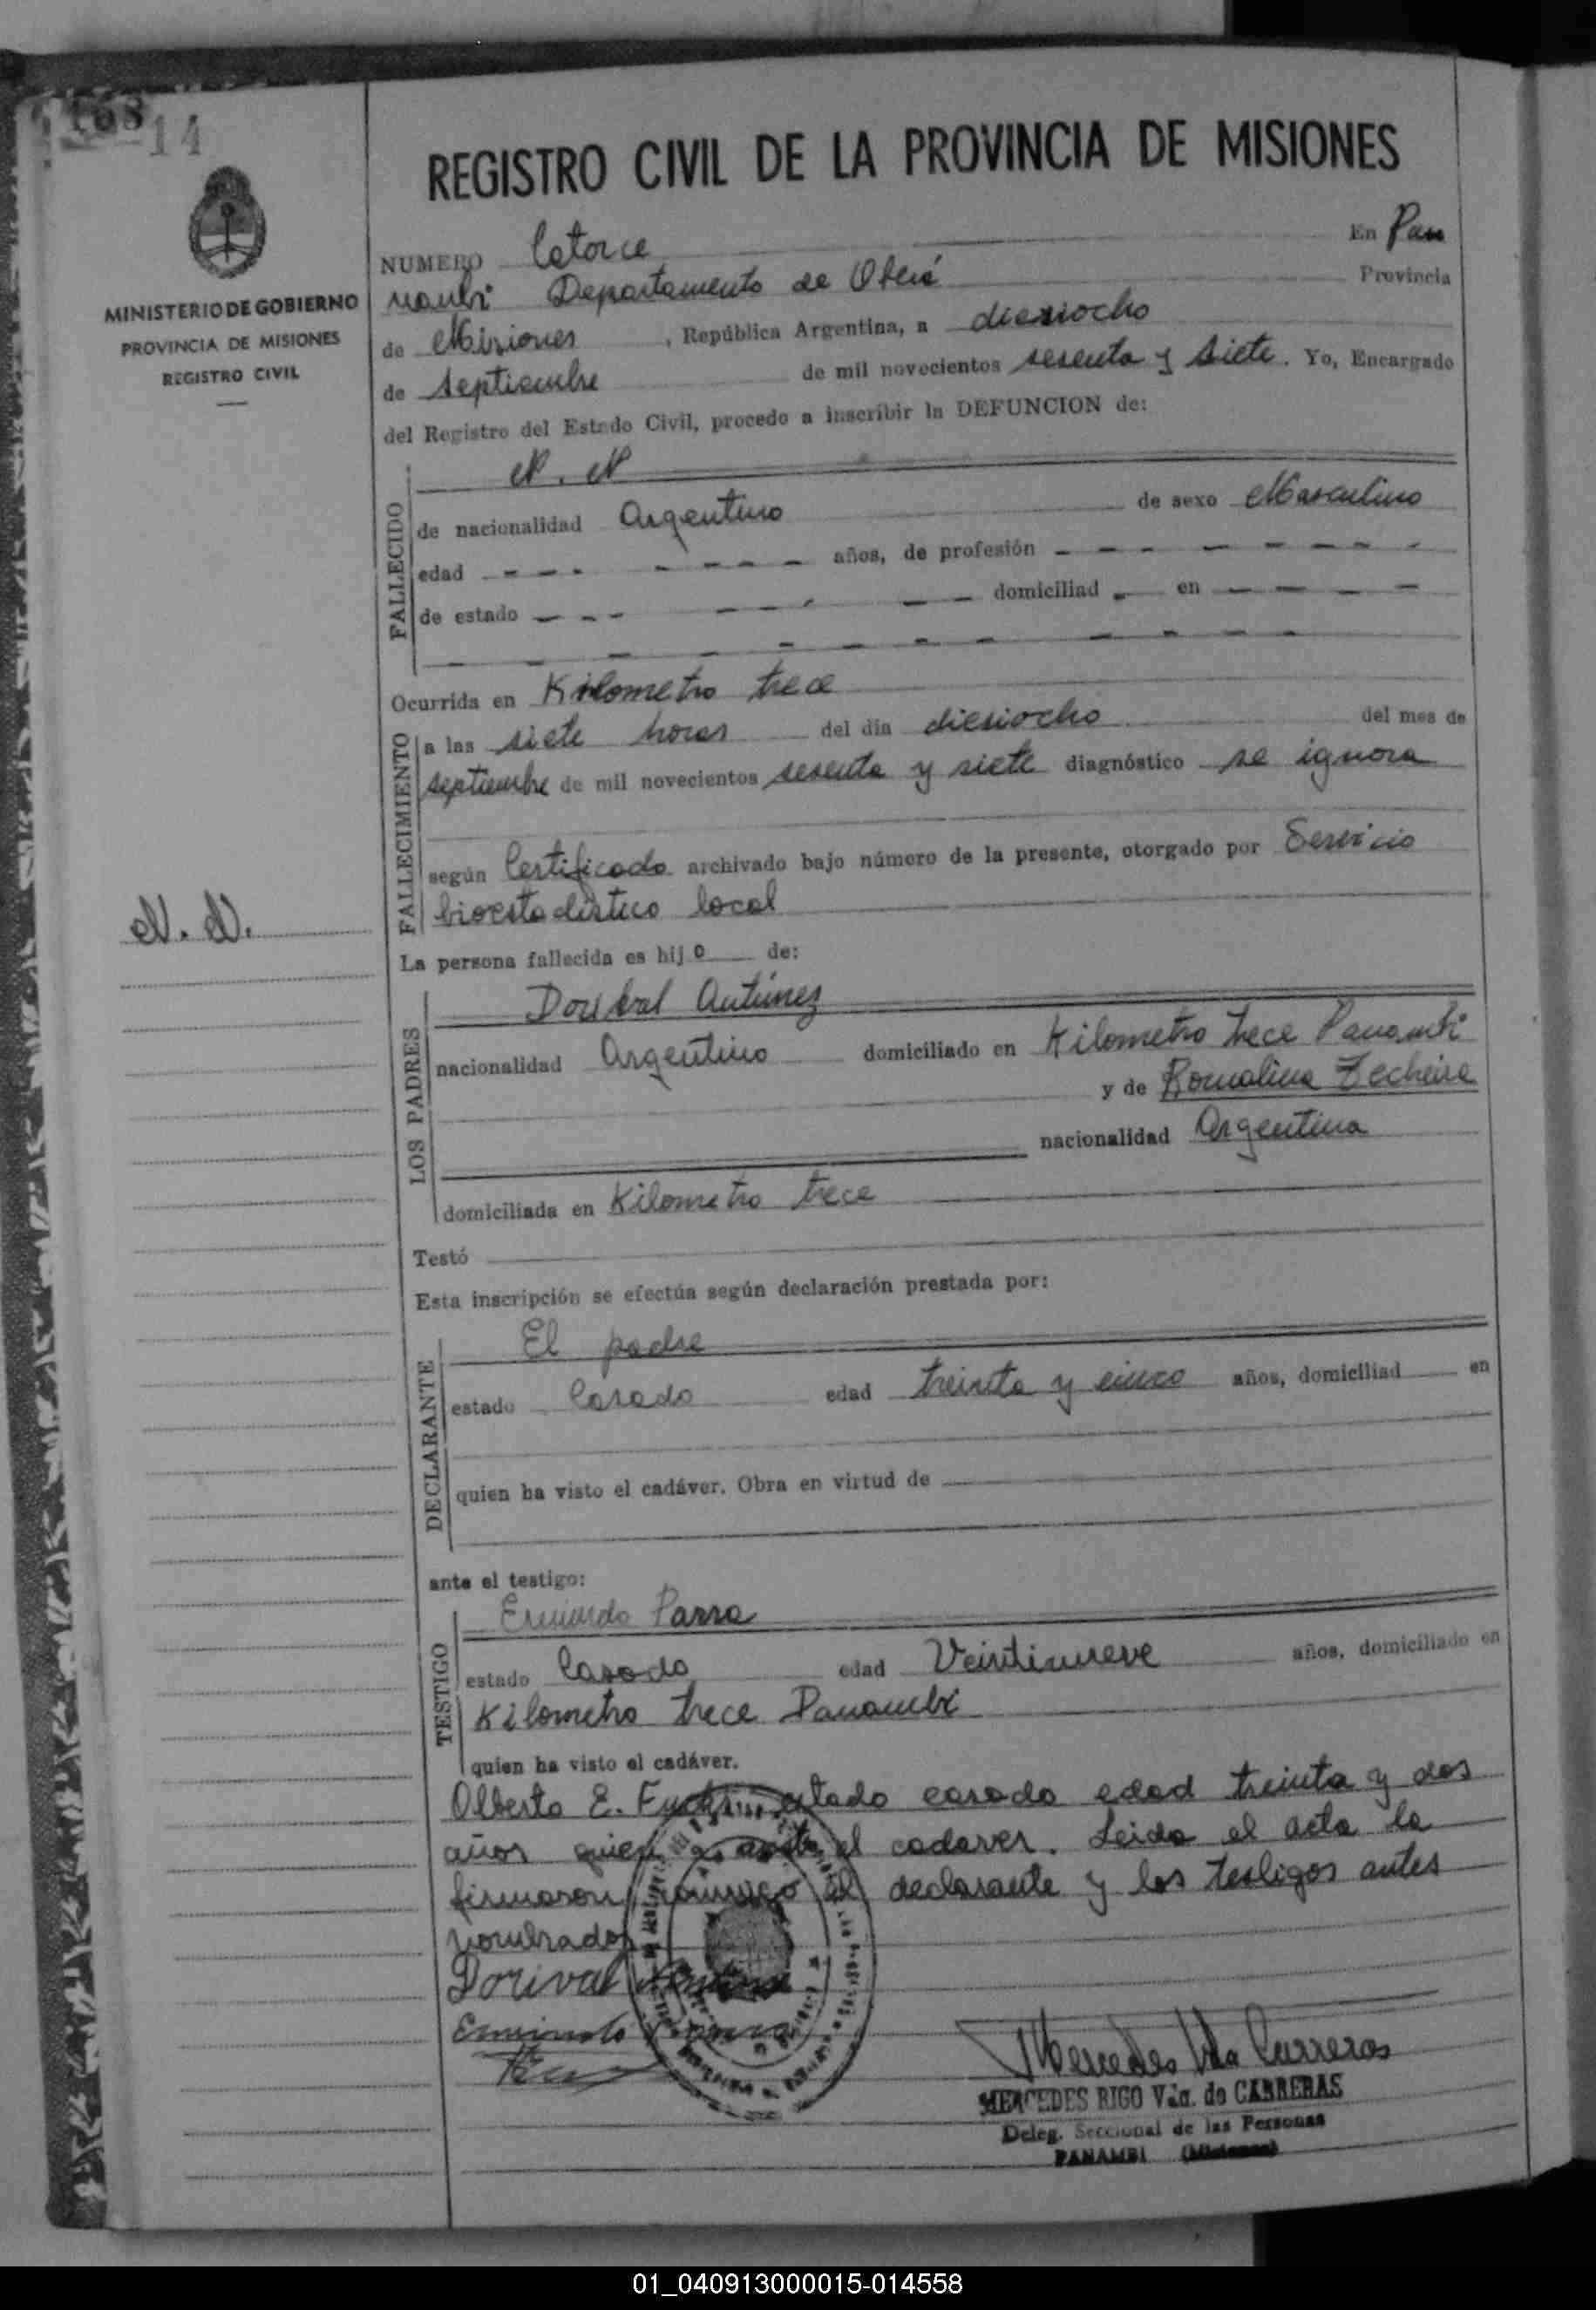 168
14
MINISTERIO DE GOBIERNO
PROVINCIA DE MISIONES
REGISTRO CIVIL
N. N.
REGISTRO CIVIL DE LA PROVINCIA DE MISIONES
NUMERO Catorce En Pan
nambi Departamento de Oberá Provincia
de Misiones, República Argentina, a diesiocho
de septiembre de mil novecientos sesenta y siete. Yo, Encargado
del Registro del Estado Civil, procedo a inscribir la DEFUNCION de:
FALLECIDO
N. N
de nacionalidad Argentino de sexo Masculino
edad - - - - - - - años, de profesión - - - - - - - -
de estado - - - - - - - domiciliad - en - - - -
- - - - - - - - - - - -
Ocurrida en Kilometro trece
FALLECIMIENTO
a las siete horas del día diesiocho del mes de
septiembre de mil novecientos sesenta y siete diagnóstico se ignora
según Certificado archivado bajo número de la presente, otorgado por Servicio
bioestadistico local
La persona fallecida es hijo de:
LOS PADRES
Dorival Antúnez
nacionalidad Argentino domiciliado en Kilometro trece Panambi
y de Romalina Zecheira
nacionalidad Argentina
domiciliada en Kilometro trece
Testó
Esta inscripción se efectúa según declaración prestada por:
DECLARANTE
El padre
estado Casado edad treinta y cinco años, domiciliad en
quien ha visto el cadáver. Obra en virtud de
ante el testigo:
TESTIGO
Erminndo Parra
estado Casado edad Veintinueve años, domiciliado en
Kilometro trece Panambi
quien ha visto el cadáver.
Alberto E. Fuchs estado casado edad treinta y dos
años quien el cadaver. Leida el acta la
firmaron conmigo el declarante y los testigos antes
nombrados
Dorival
Mercedes Vda Carreras
MERCEDES RIGO Vda. de CARRERAS
Deleg. Seccional de las Personas
PANAMBI (Misiones)
01_040913000015-014558